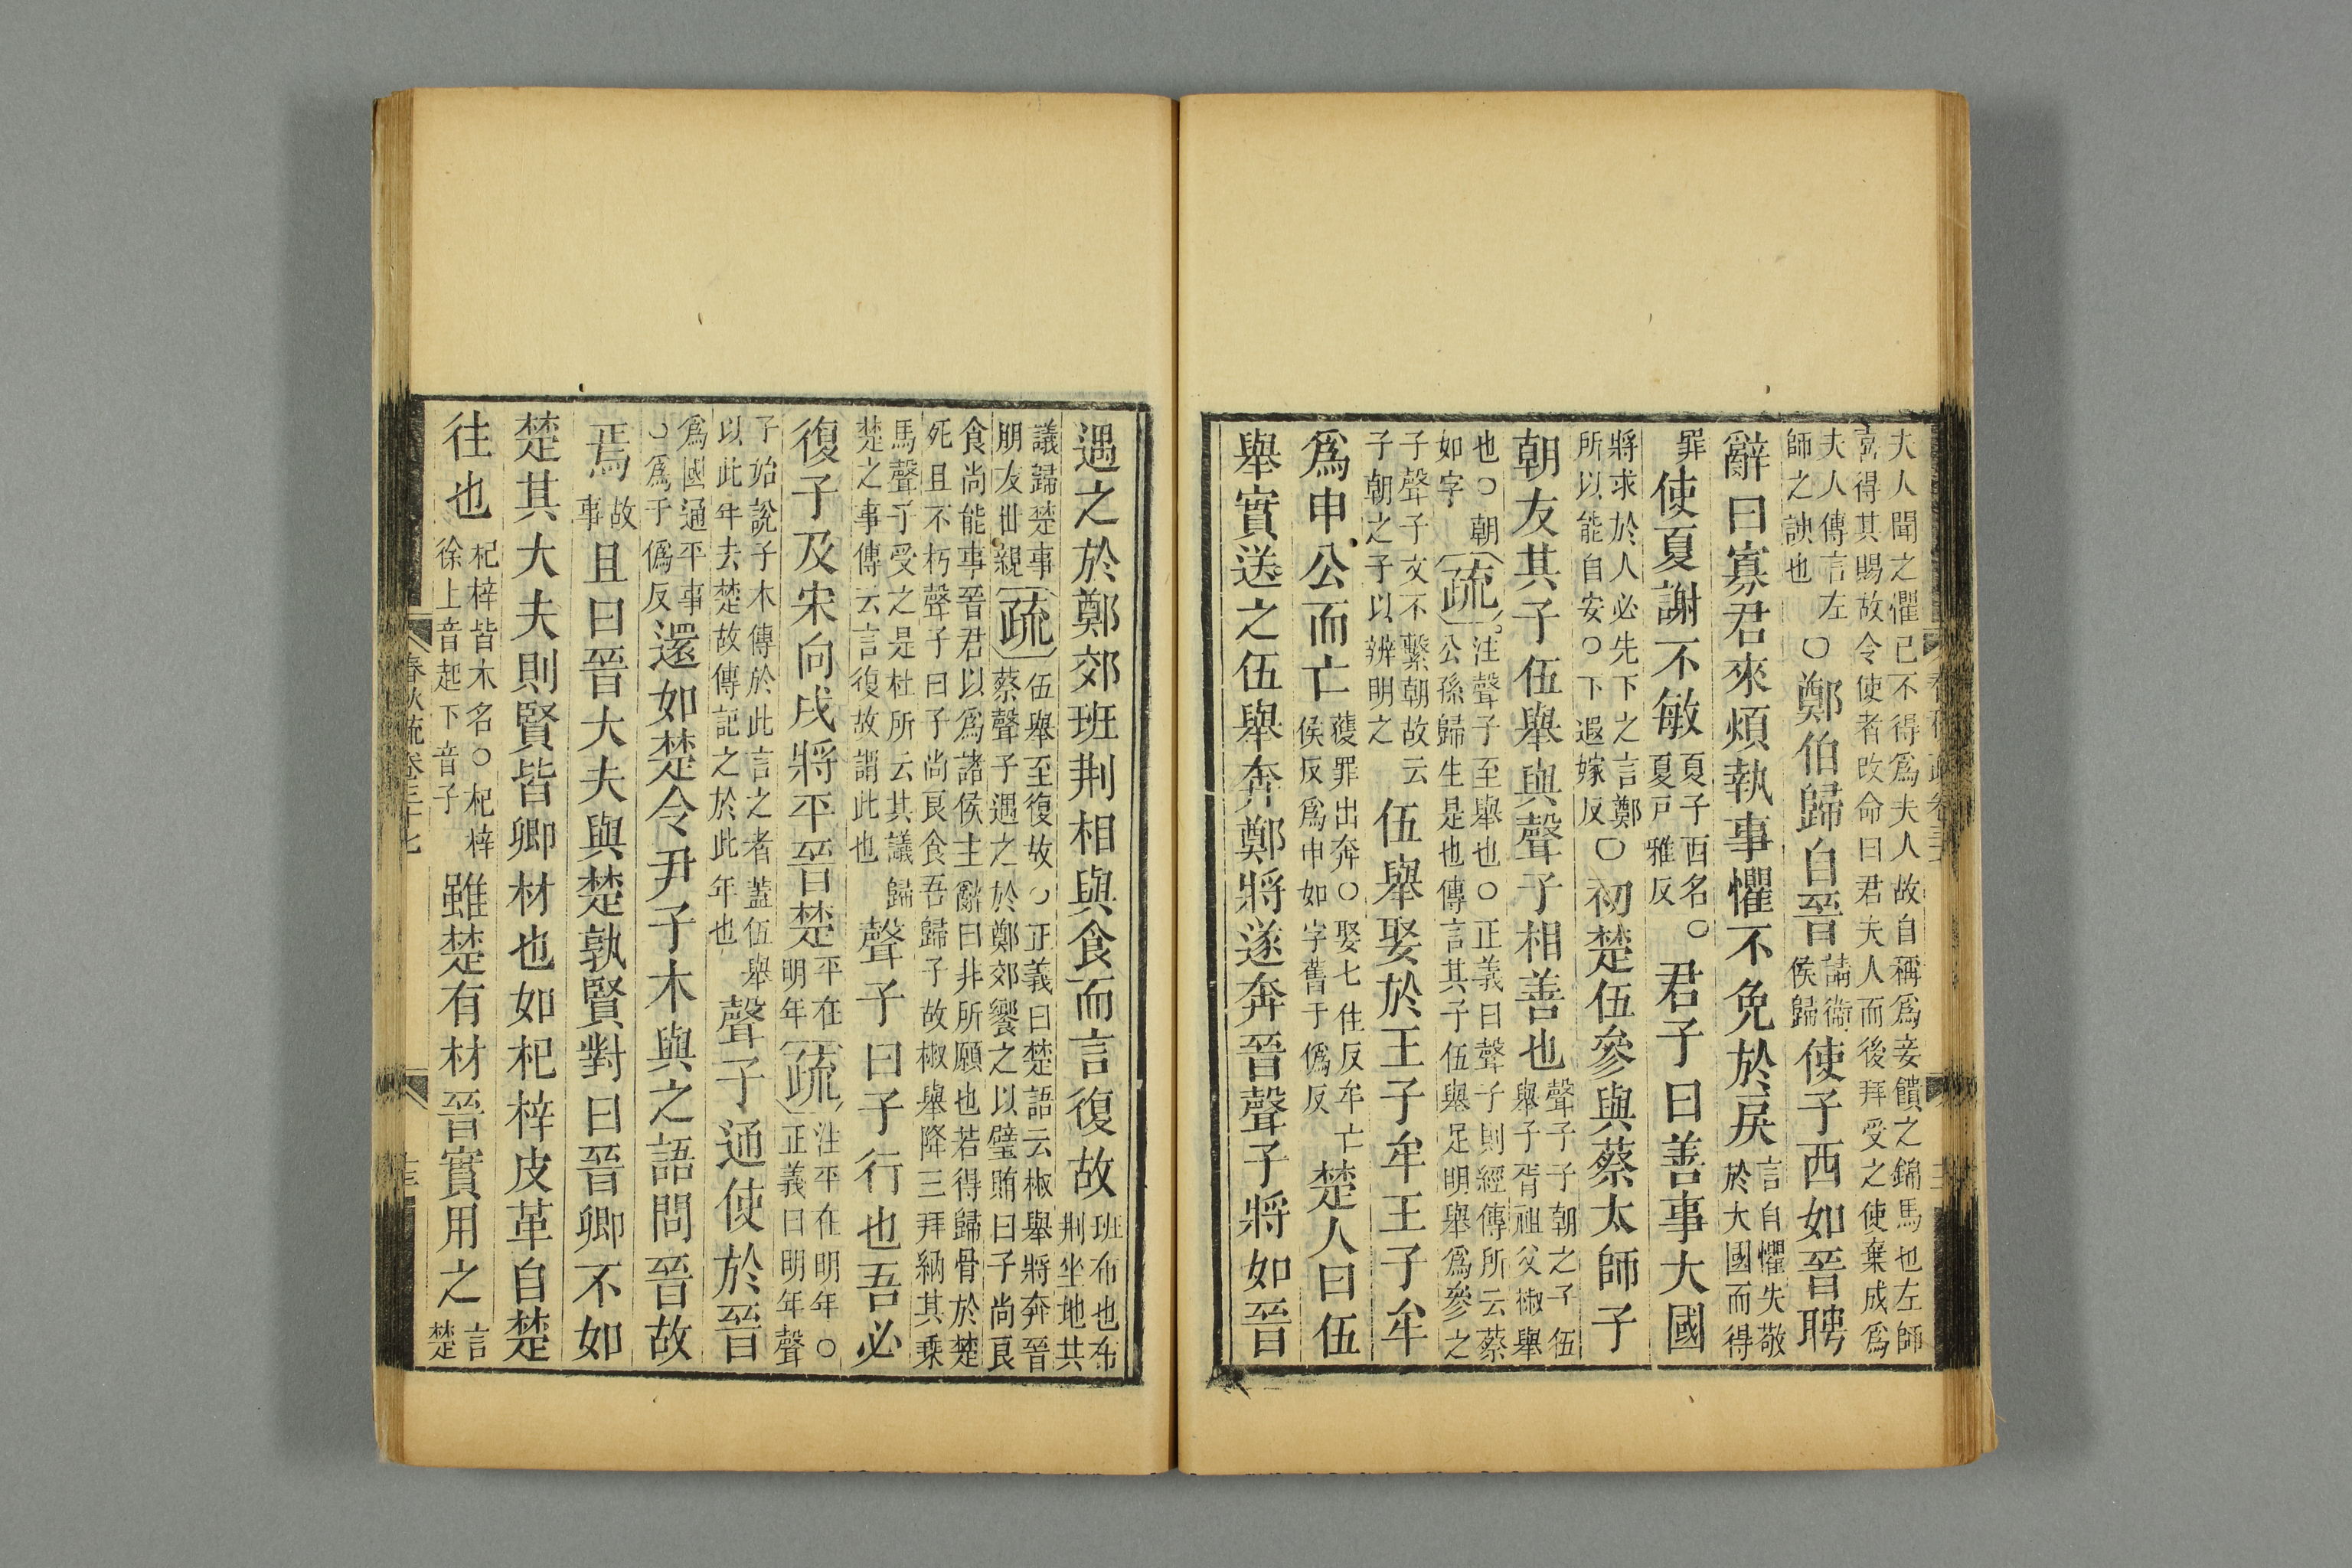 夫人聞之懼已不得爲夫人故自稱爲妾饋之錦馬也左師
喜得其賜故令使者改命曰君夫人而後拜受之使棄成爲
夫人傳言左
師之諛也
〇鄭伯歸自晉
請衛
侯歸
使子西如晉聘
辭曰寡君來煩執事懼不免於戾
言自懼失敬
於大國而得
罪
使夏謝不敏
夏子西名〇
夏戸雅反
君子曰善事大國
將求於人必先下之言鄭
所以能自安〇下遐嫁反
〇初楚伍參與蔡太師子
朝友其子伍舉與聲子相善也
聲子子朝之子伍
舉子胥祖父椒舉
也〇朝
如字
疏
注聲子至舉也〇正義曰聲子則經傳所云蔡
公孫歸生是也傳言其子伍舉足明舉爲參之
子聲子文不繫朝故云
子朝之子以辨明之
伍舉娶於王子牟王子牟
爲申公而亡
獲罪出奔〇娶七住反牟亡
侯反爲申如字舊于僞反
楚人曰伍
舉實送之伍舉奔鄭將遂奔晉聲子將如晉
遇之於鄭郊班荆相與食而言復故
班布也布
荆坐地共
議歸楚事
朋友世親
疏
伍舉至復故〇正義曰楚語云椒舉將奔晉
蔡聲子遇之於鄭郊饗之以璧賄曰子尚良
食尚能事晉君以爲諸侯主辭曰非所願也若得歸骨於楚
死且不朽聲子曰子尚良食吾歸子故椒舉降三拜納其乘
馬聲子受之是杜所云共議歸
楚之事傳云言復故謂此也
聲子曰子行也吾必
復子及宋向戌將平晉楚
平在
明年
疏
注平在明年〇
正義曰明年聲
子始說子木傳於此言之者蓋伍舉
以此年去楚故傳記之於此年也
聲子通使於晉
爲國通平事
〇爲于僞反
還如楚令尹子木與之語問晉故
焉
故
事
且曰晉大夫與楚孰賢對曰晉卿不如
楚其大夫則賢皆卿材也如杞梓皮革自楚
往也
杞梓皆木名〇杞梓
徐上音起下音子
雖楚有材晉實用之
言
楚
春秋疏卷三十七